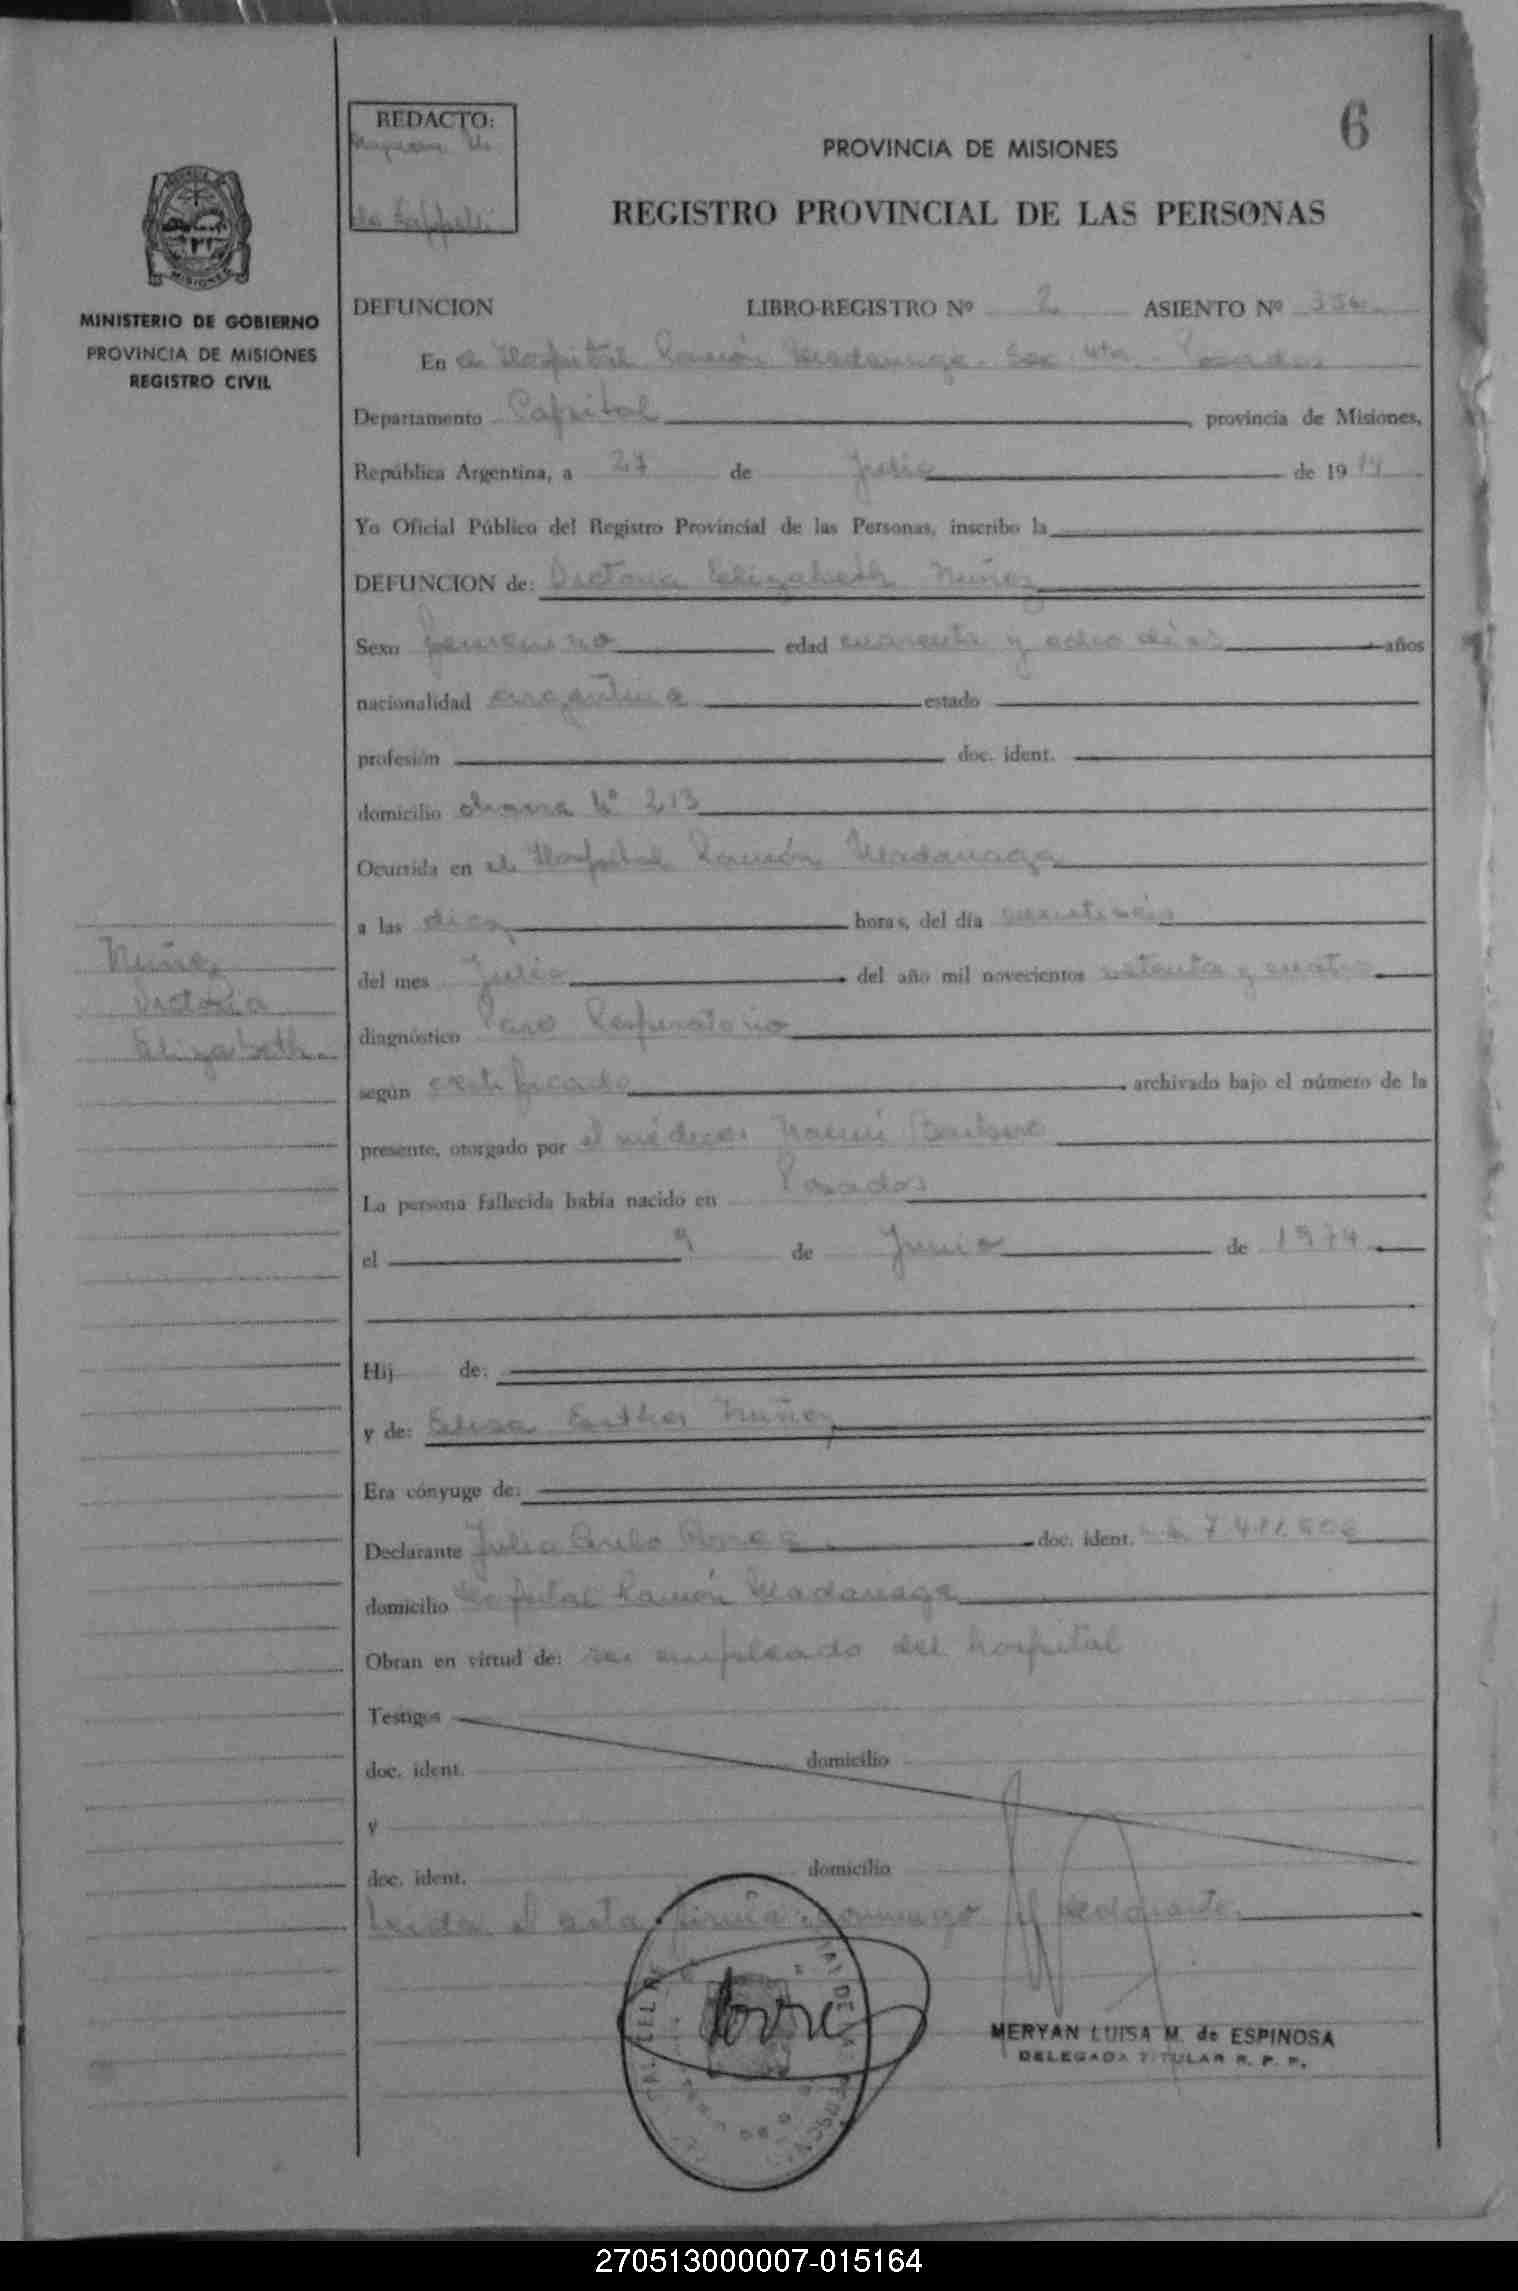 6
REDACTO:
PROVINCIA DE MISIONES
REGISTRO PROVINCIAL DE LAS PERSONAS
MINISTERIO DE GOBIERNO
PROVINCIA DE MISIONES
REGISTRO CIVIL
DEFUNCION LIBRO-REGISTRO Nº 2 ASIENTO Nº
En el Hospital Ramón Madariaga Sec. 4ta. Posadas
Departamento Capital, provincia de Misiones,
República Argentina, a 27 de Julio de 1974
Yo Oficial Público del Registro Provincial de las Personas, inscribo la
DEFUNCION de: Victoria Elizabeth Nuñez
Sexo femenino edad cuarenta y ocho días años
nacionalidad argentina estado
profesión doc. ident.
domicilio chacra Nº 213
Ocurrida en el Hospital Ramón Madariaga
a las diez horas, del día veintiseis
del mes Julio del año mil novecientos setenta y cuatro
diagnóstico Paro Respiratorio
según certificado archivado bajo el número de la
presente, otorgado por el médico Noemí
La persona fallecida había nacido en Posadas
el 9 de Junio de 1974
Hij de:
y de: Elisa Esther Nuñez
Era cónyuge de:
Declarante Julia doc. ident.
domicilio Hospital Ramón Madariaga
Obran en virtud de: ser empleado del hospital
Testigos
doc. ident. domicilio
y
doc. ident. domicilio
Leida el acta firma conmigo el declarante.
Nuñez
Victoria
Elizabeth
MERYAN LUISA M. de ESPINOSA
DELEGADA TITULAR R. P. P.
270513000007-015164